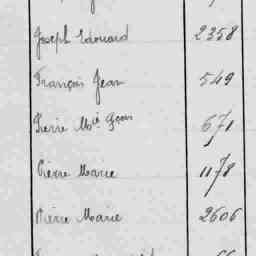 Joseph Edouard 2358
François Jean 549
Pierre Mie Jean 671
Pierre Marie 1178
Pierre Marie 2606